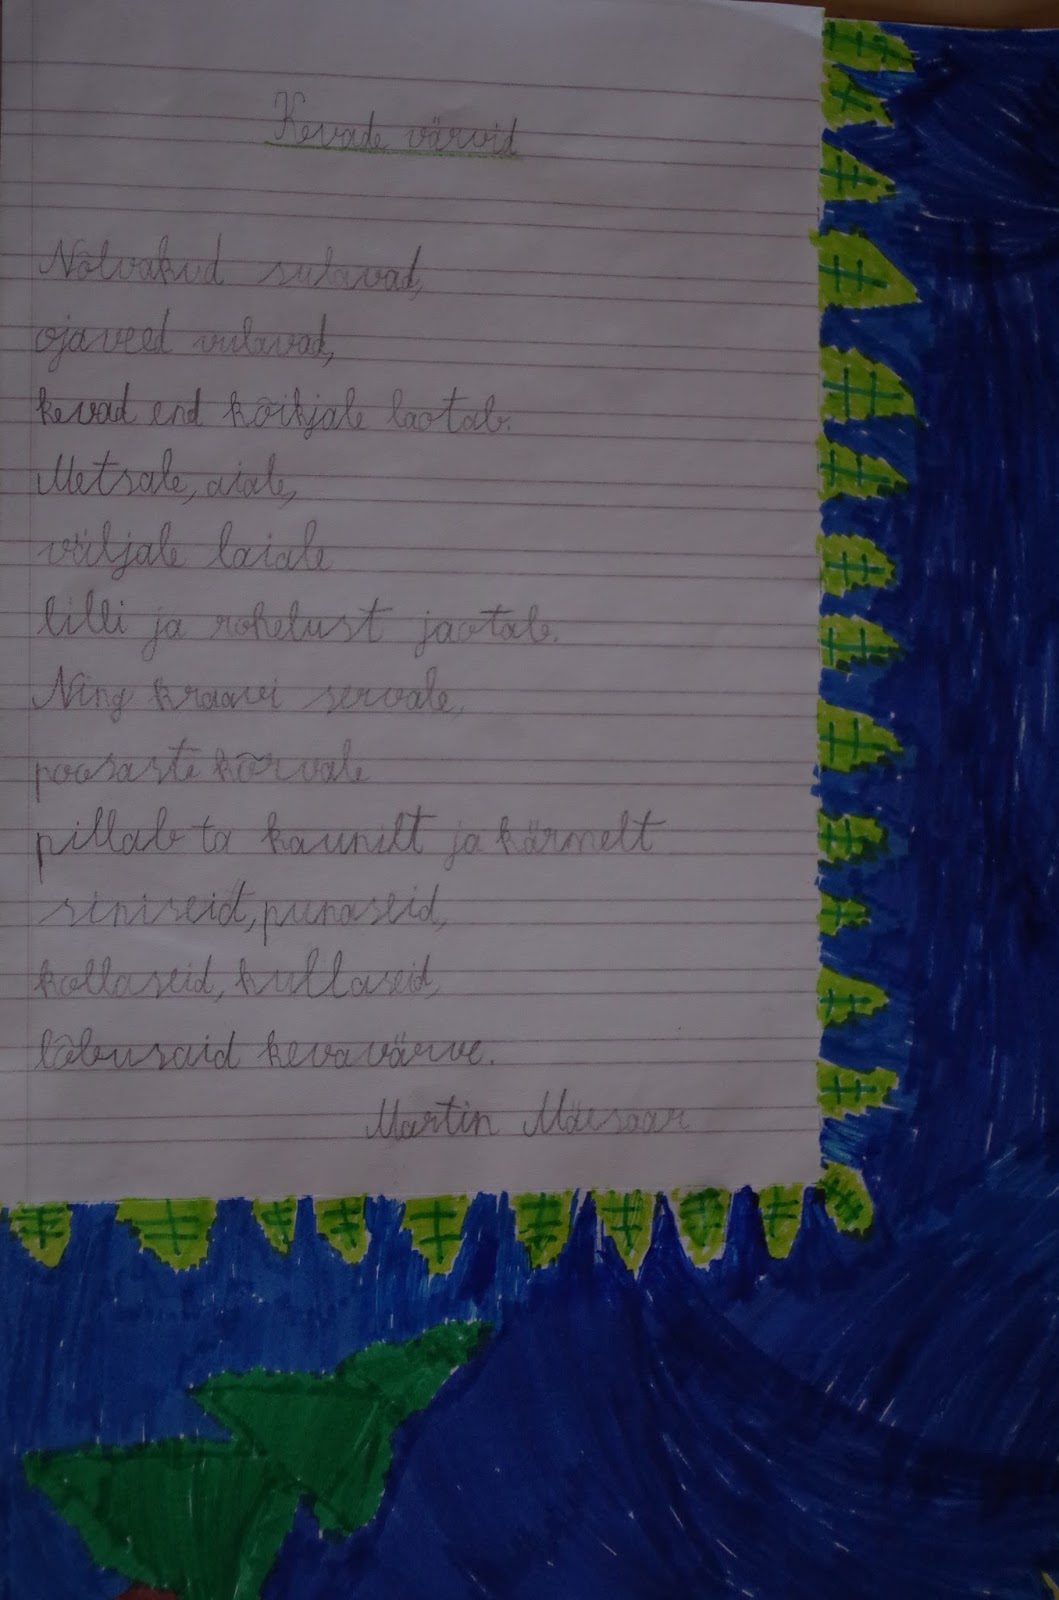 Kevade värvid
Nõlvakud sulavad,
ojaveed vulavad,
kevad end kõikjale laotab.
Metsale, aiale,
väljale laiale
lilli ja rohelust jaotab.
Ning kraavi servale,
poosaste kõrvale
pillab ta kaunilt ja kärmelt
siniseid, punaseid,
kollaseid, kullaseid,
lõbusaid kevavärve.
Martin Mäesaar